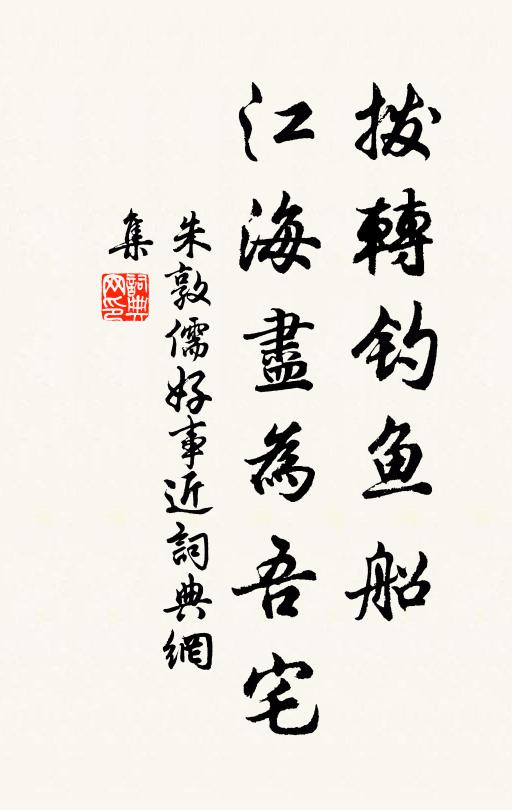 拨轉钓鱼船
江海盡為吾宅
朱敦儒好事近詞典網
集
詞典网印